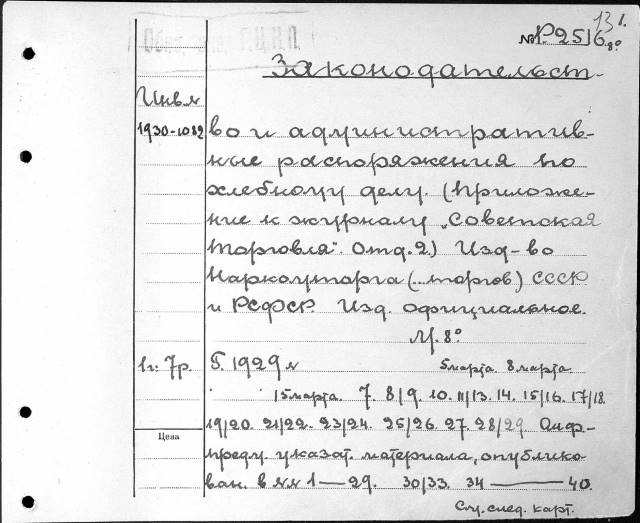 131.
№ P.25/6.8°
Законодательст-
Инв.№
1930-1082
во и административ-
ные распоряжения по
хлебному делу. (Приложе-
ние к журналу „Советская
Торговля". Отд.2.) Изд-во
Наркомторга (...торгов) СССР
и РСФСР. Изд. официальное.
М. 8°
1г. 7р.
Г. 1929 №
5марта. 8марта.
15марта. 7. 8/9. 10. 11/13. 14. 15/16. 17/18.
19/20. 21/22. 23/24. 25/26. 27. 28/29.
Цена
предм. указат. материала, опублико-
ван. в №№ 1—29. 30/33. 34 — 40.
См. след. карт.